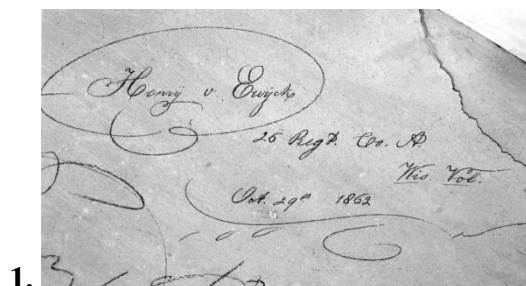 Henry v. Ewÿck
26 Regt. Co. A
Wis. Vol.
Oct. 29th 1862
1.